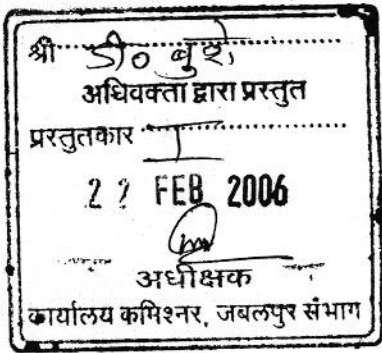 श्री डी०
अधिवक्ता द्वारा प्रस्तुत
प्रस्तुतकार I
22 FEB 2006
अधीक्षक
कार्यालय कमिश्नर, जबलपुर संभाग